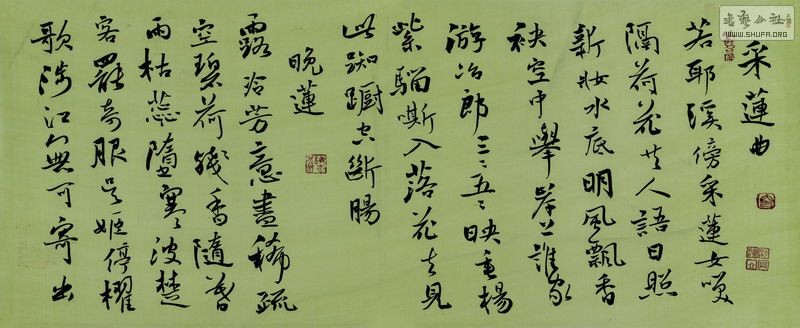 采蓮曲
若耶溪傍采蓮女笑
隔荷花共人語日照
新妝水底明風飄香
袂空中舉岸上誰家
游冶郎三々五々映垂楊
紫騮嘶入落花去見
此踟躕空斷腸
晚蓮
露冷芳意盡稀疏
空碧荷殘香隨暮
雨枯蕊墮寒波楚
客罷奇服吳姬停櫂
歌涉江無可寄幽
書藝公社
HTTP://WWW.SHUFA.ORG